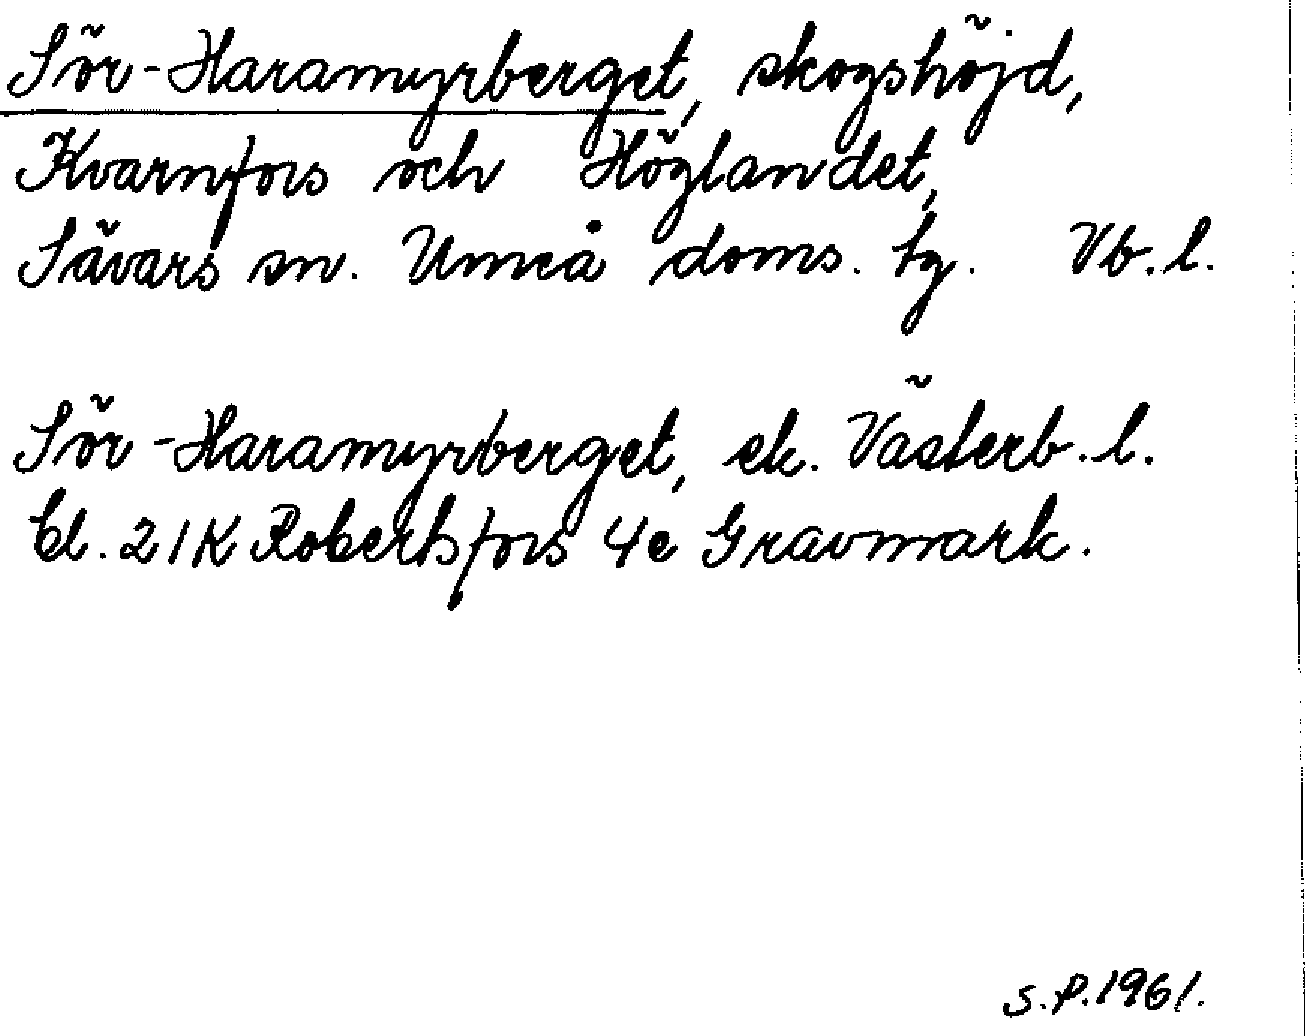 Sör-Haramyrberget, skogshöjd,
Kvarnfors och Höglandet,
Sävars sn. Umeå doms. tg. Vb.l.
Sör-Haramyrberget, ek. Västerb.l.
bl. 21K Robertsfors 4e Gravmark.
S.P.1961.